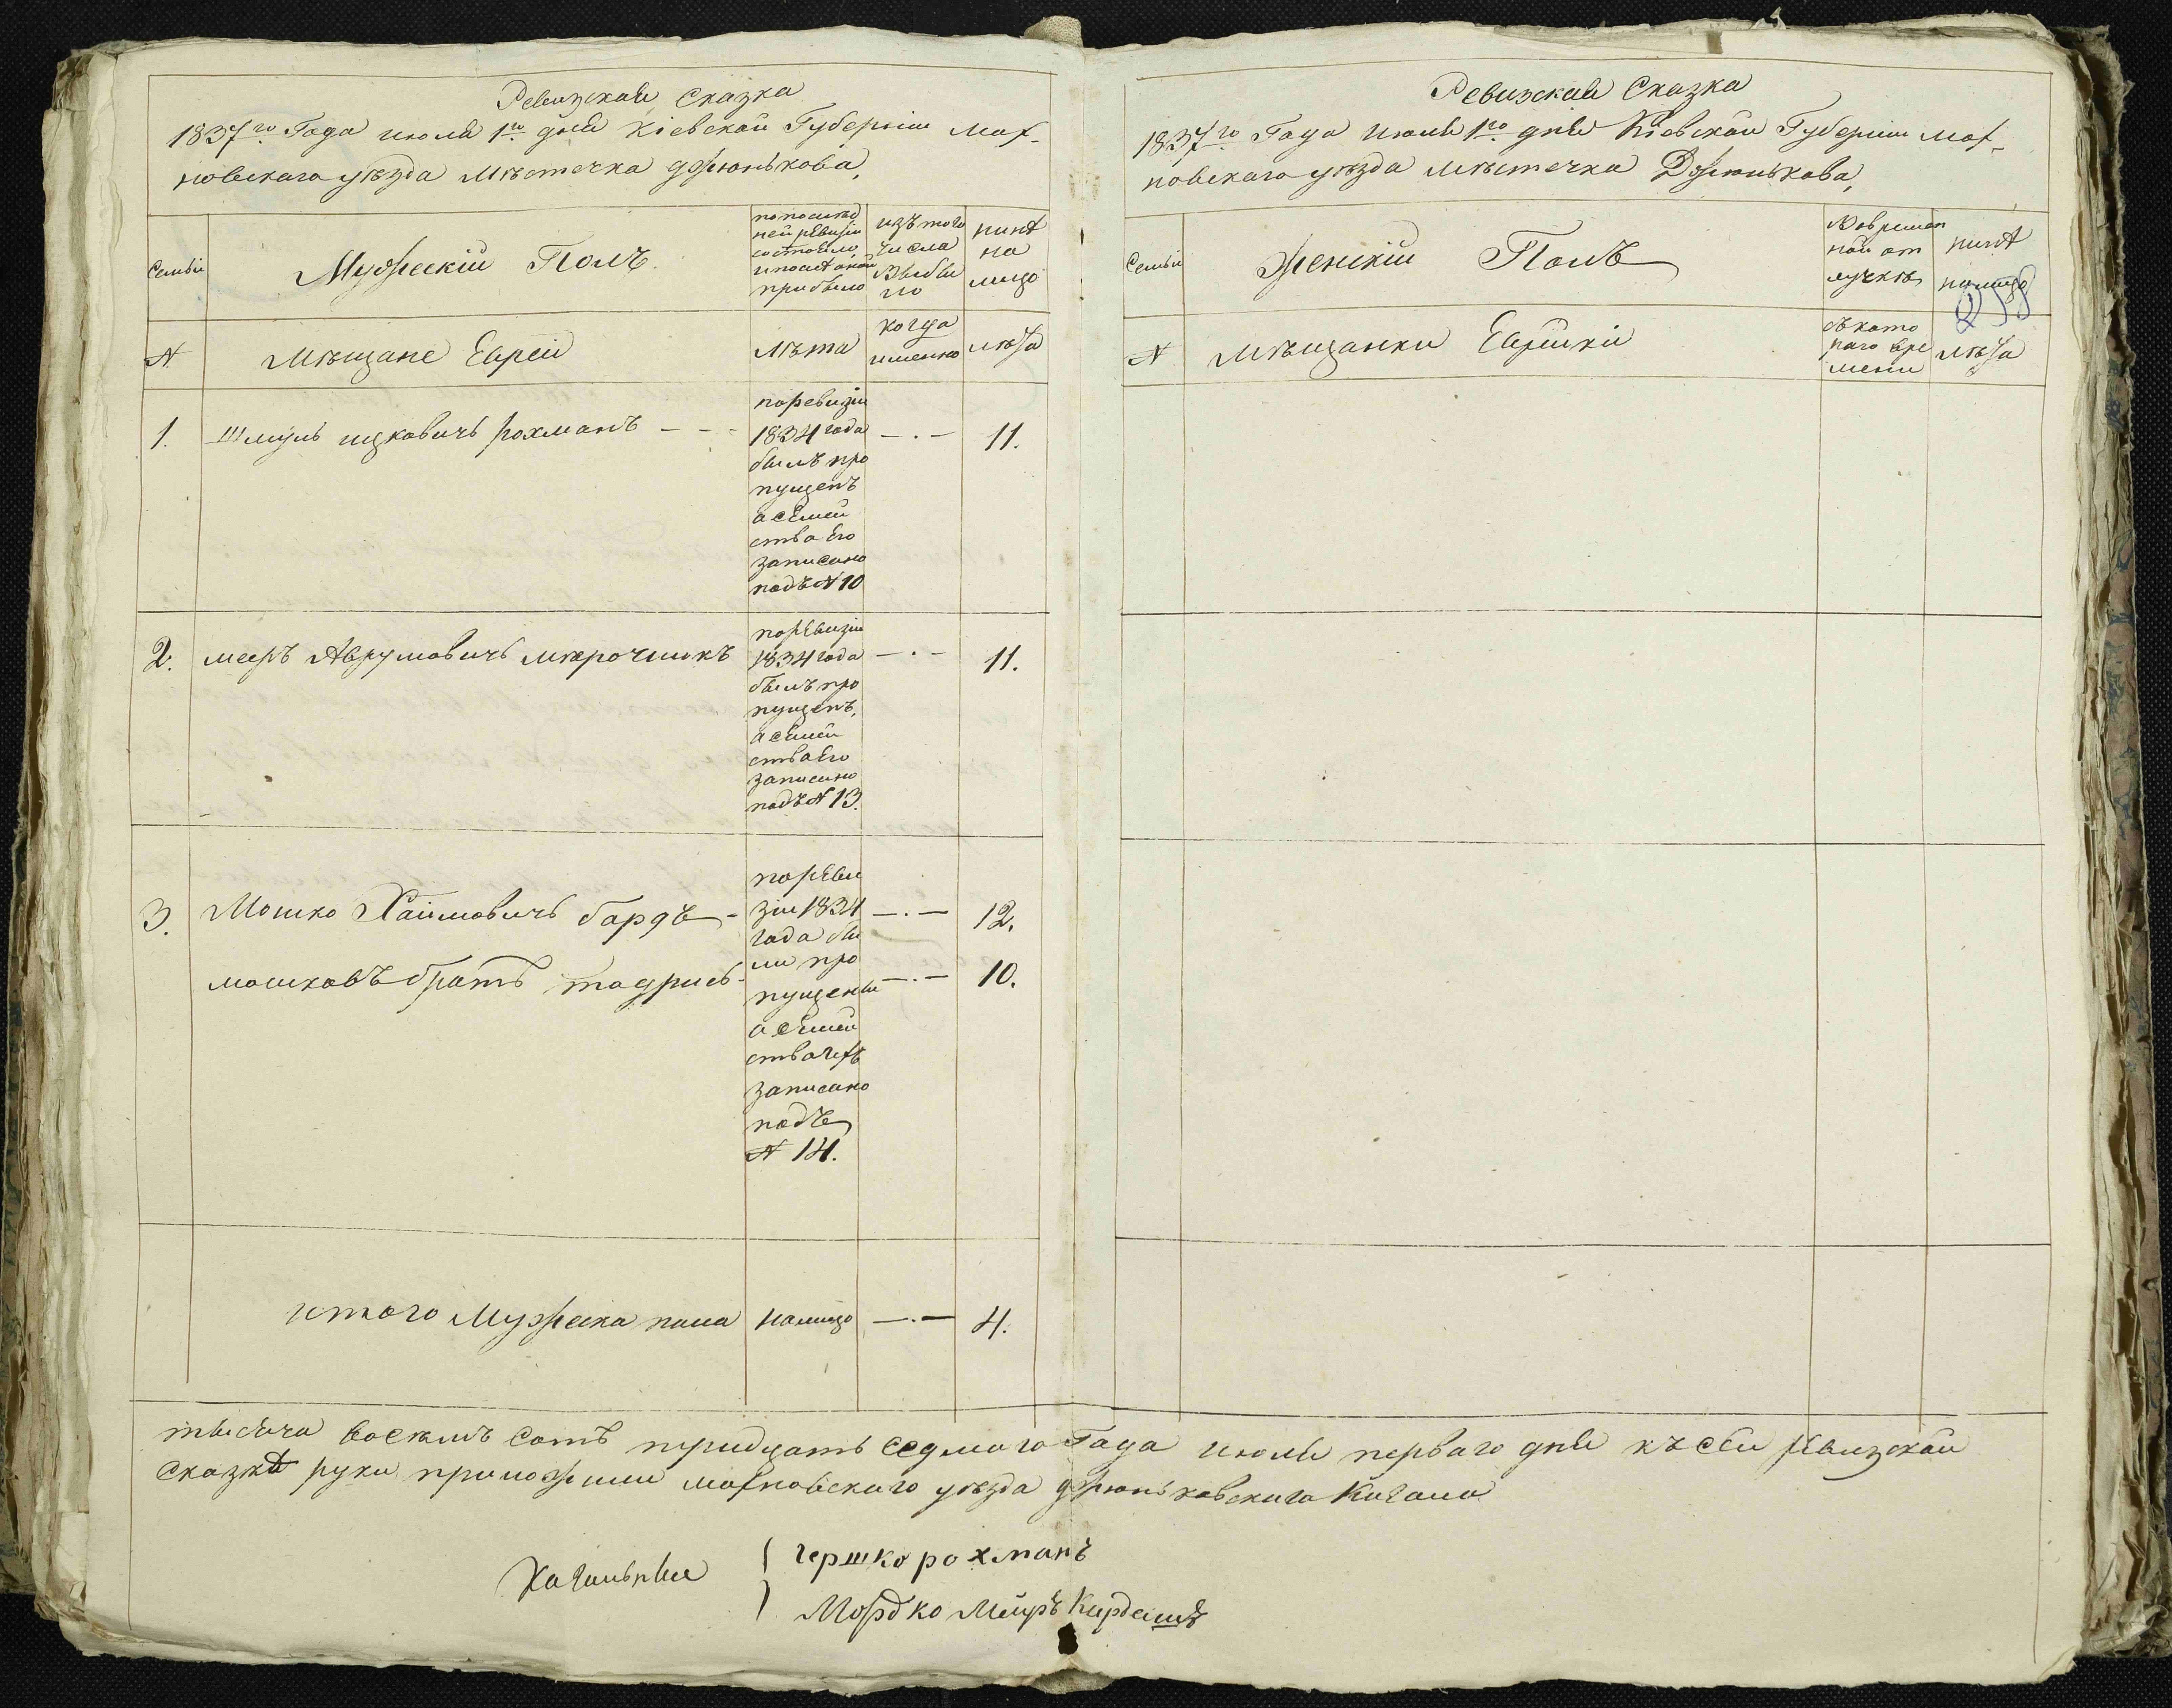 Ревизская Сказка
1837го Года июля 1го дня Кіевской Губерніи Мах-
новскаго уѣзда мѣстечка Дзюнькова,
Семьи
Мужескій Полъ
по послѣд
ней ревизіи
состояло,
и послѣ оной
прибыло
изъ того
числа
Выбы
ло
нынѣ
на
лицо
N
Мѣщане Евреи
Лѣта
когда
именно
лѣта
1.
Шмуль ицковичь рохманъ - - -
поревизіи
1834 года
былъ про
пущенъ
а семей
ство Его
записано
подъ N 10
—.—
11.
2.
мееръ Аврумовичь мирочникъ
поревизіи
1834 года
былъ про
пущенъ,
а семей
ство Его
записано
подъ N 13.
—.—
11.
3.
Мошко Хаимовичь бардъ -
мошковъ братъ тодрисъ -
пореви
зіи 1834
года бы
ли про
пущены
а семей
ство ихъ
записано
подъ
N 14.
—.—
12.
—.—
10.
итого Мужеска пола
налицо
—.—
4.
Ревизская Сказка
1837го Года июля 1го дня Кіевской Губерніи Мах-
новскаго уѣзда мѣстечка Дзюнькова,
Семьи
Женскій Полъ
Вовремен
ной от
лучкѣ
нынѣ
налицо
N
Мѣщанки Еврейки
съ кото
раго вре
мени
лѣта
тысяча восемь сотъ тридцать седмого Года июля первого дня къ сей ревизской
Сказкѣ руки приложили махновского уѣзда дзюньковского Кагала
Кагальные
гершко рохманъ
Мордко Меиръ Кардашъ